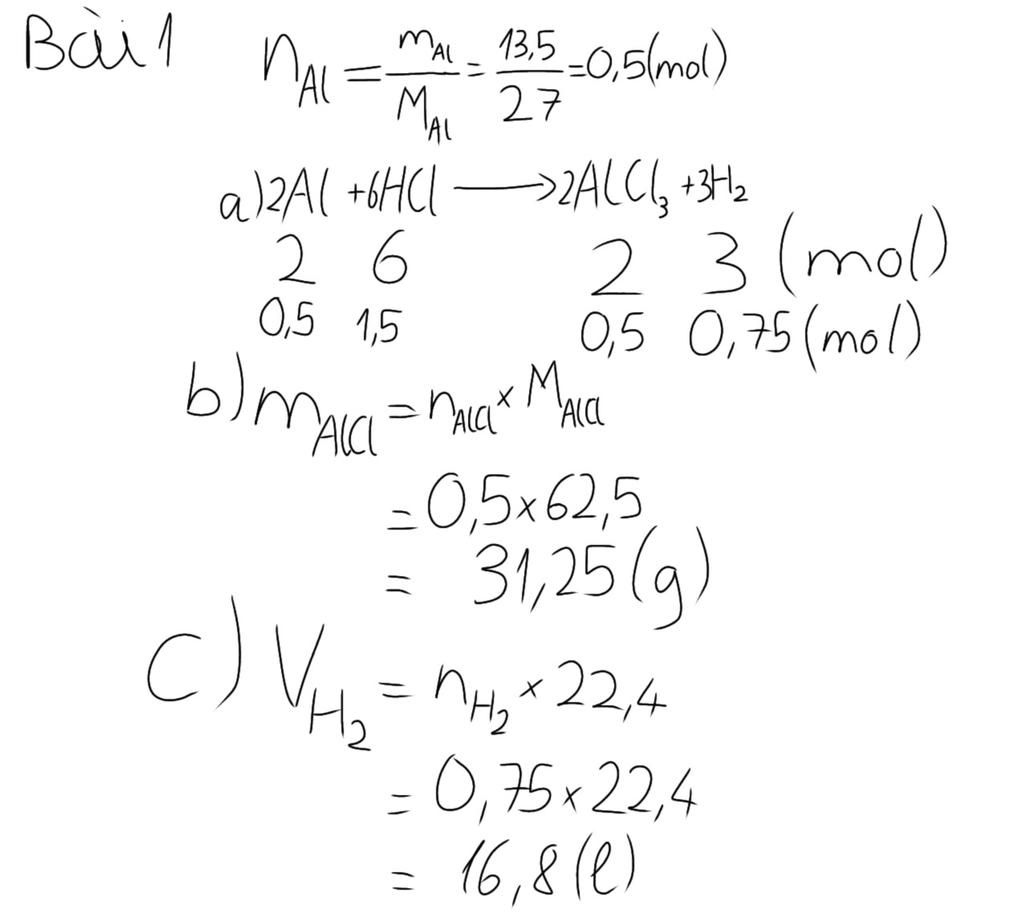 Bài 1 n_Al = m_Al/M_Al = 13,5/27 = 0,5(mol)
a) 2Al + 6HCl → 2AlCl₃ + 3H₂
2 6 2 3 (mol)
0,5 1,5 0,5 0,75 (mol)
b) m_AlCl = n_AlCl × M_AlCl
= 0,5 × 62,5
= 31,25 (g)
c) V_H₂ = n_H₂ × 22,4
= 0,75 × 22,4
= 16,8 (l)